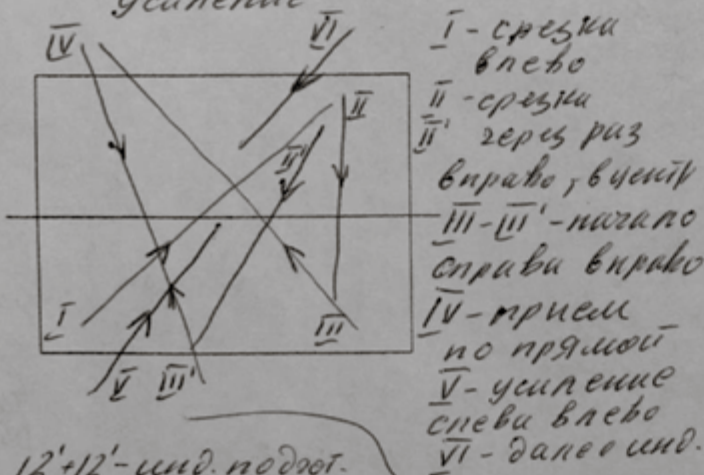 усиление
IV
VI
II
II'
I
III
V
III'
I - срезки
влево
II - срезка
II' через раз
вправо, в центр
III-III' - начало
справа вправо
IV - прием
по прямой
V - усиление
слева влево
VI - далее инд.
12'+12' - инд. подгот.